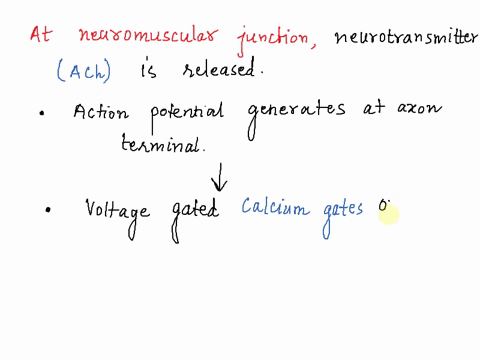 At neuromuscular junction, neurotransmitter
(Ach) is released.
• Action potential generates at axon
terminal.
↓
• Voltage gated Calcium gates o